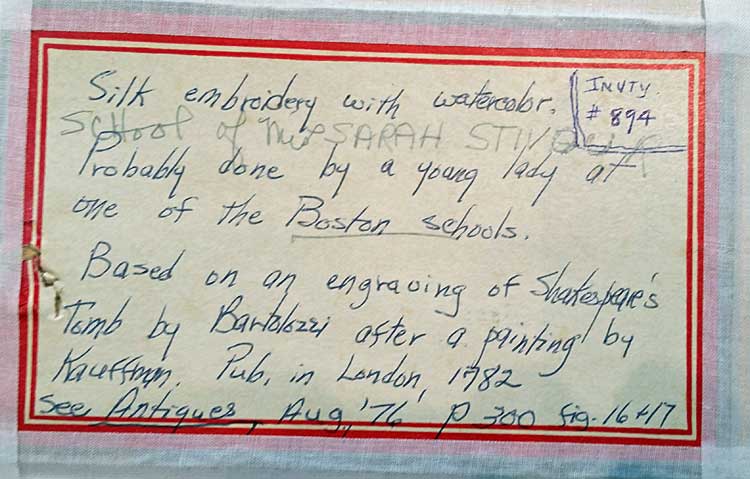 Silk embroidery with watercolor.
INVTY.
# 894
SCHOOL of Mrs SARAH
Probably done by a young lady at
one of the Boston schools.
Based on an engraving of Shakespeare's
Tomb by Bartolozzi after a painting by
Kauffman. Pub. in London, 1782
See Antiques, Aug, '76 p 300 fig. 16+17